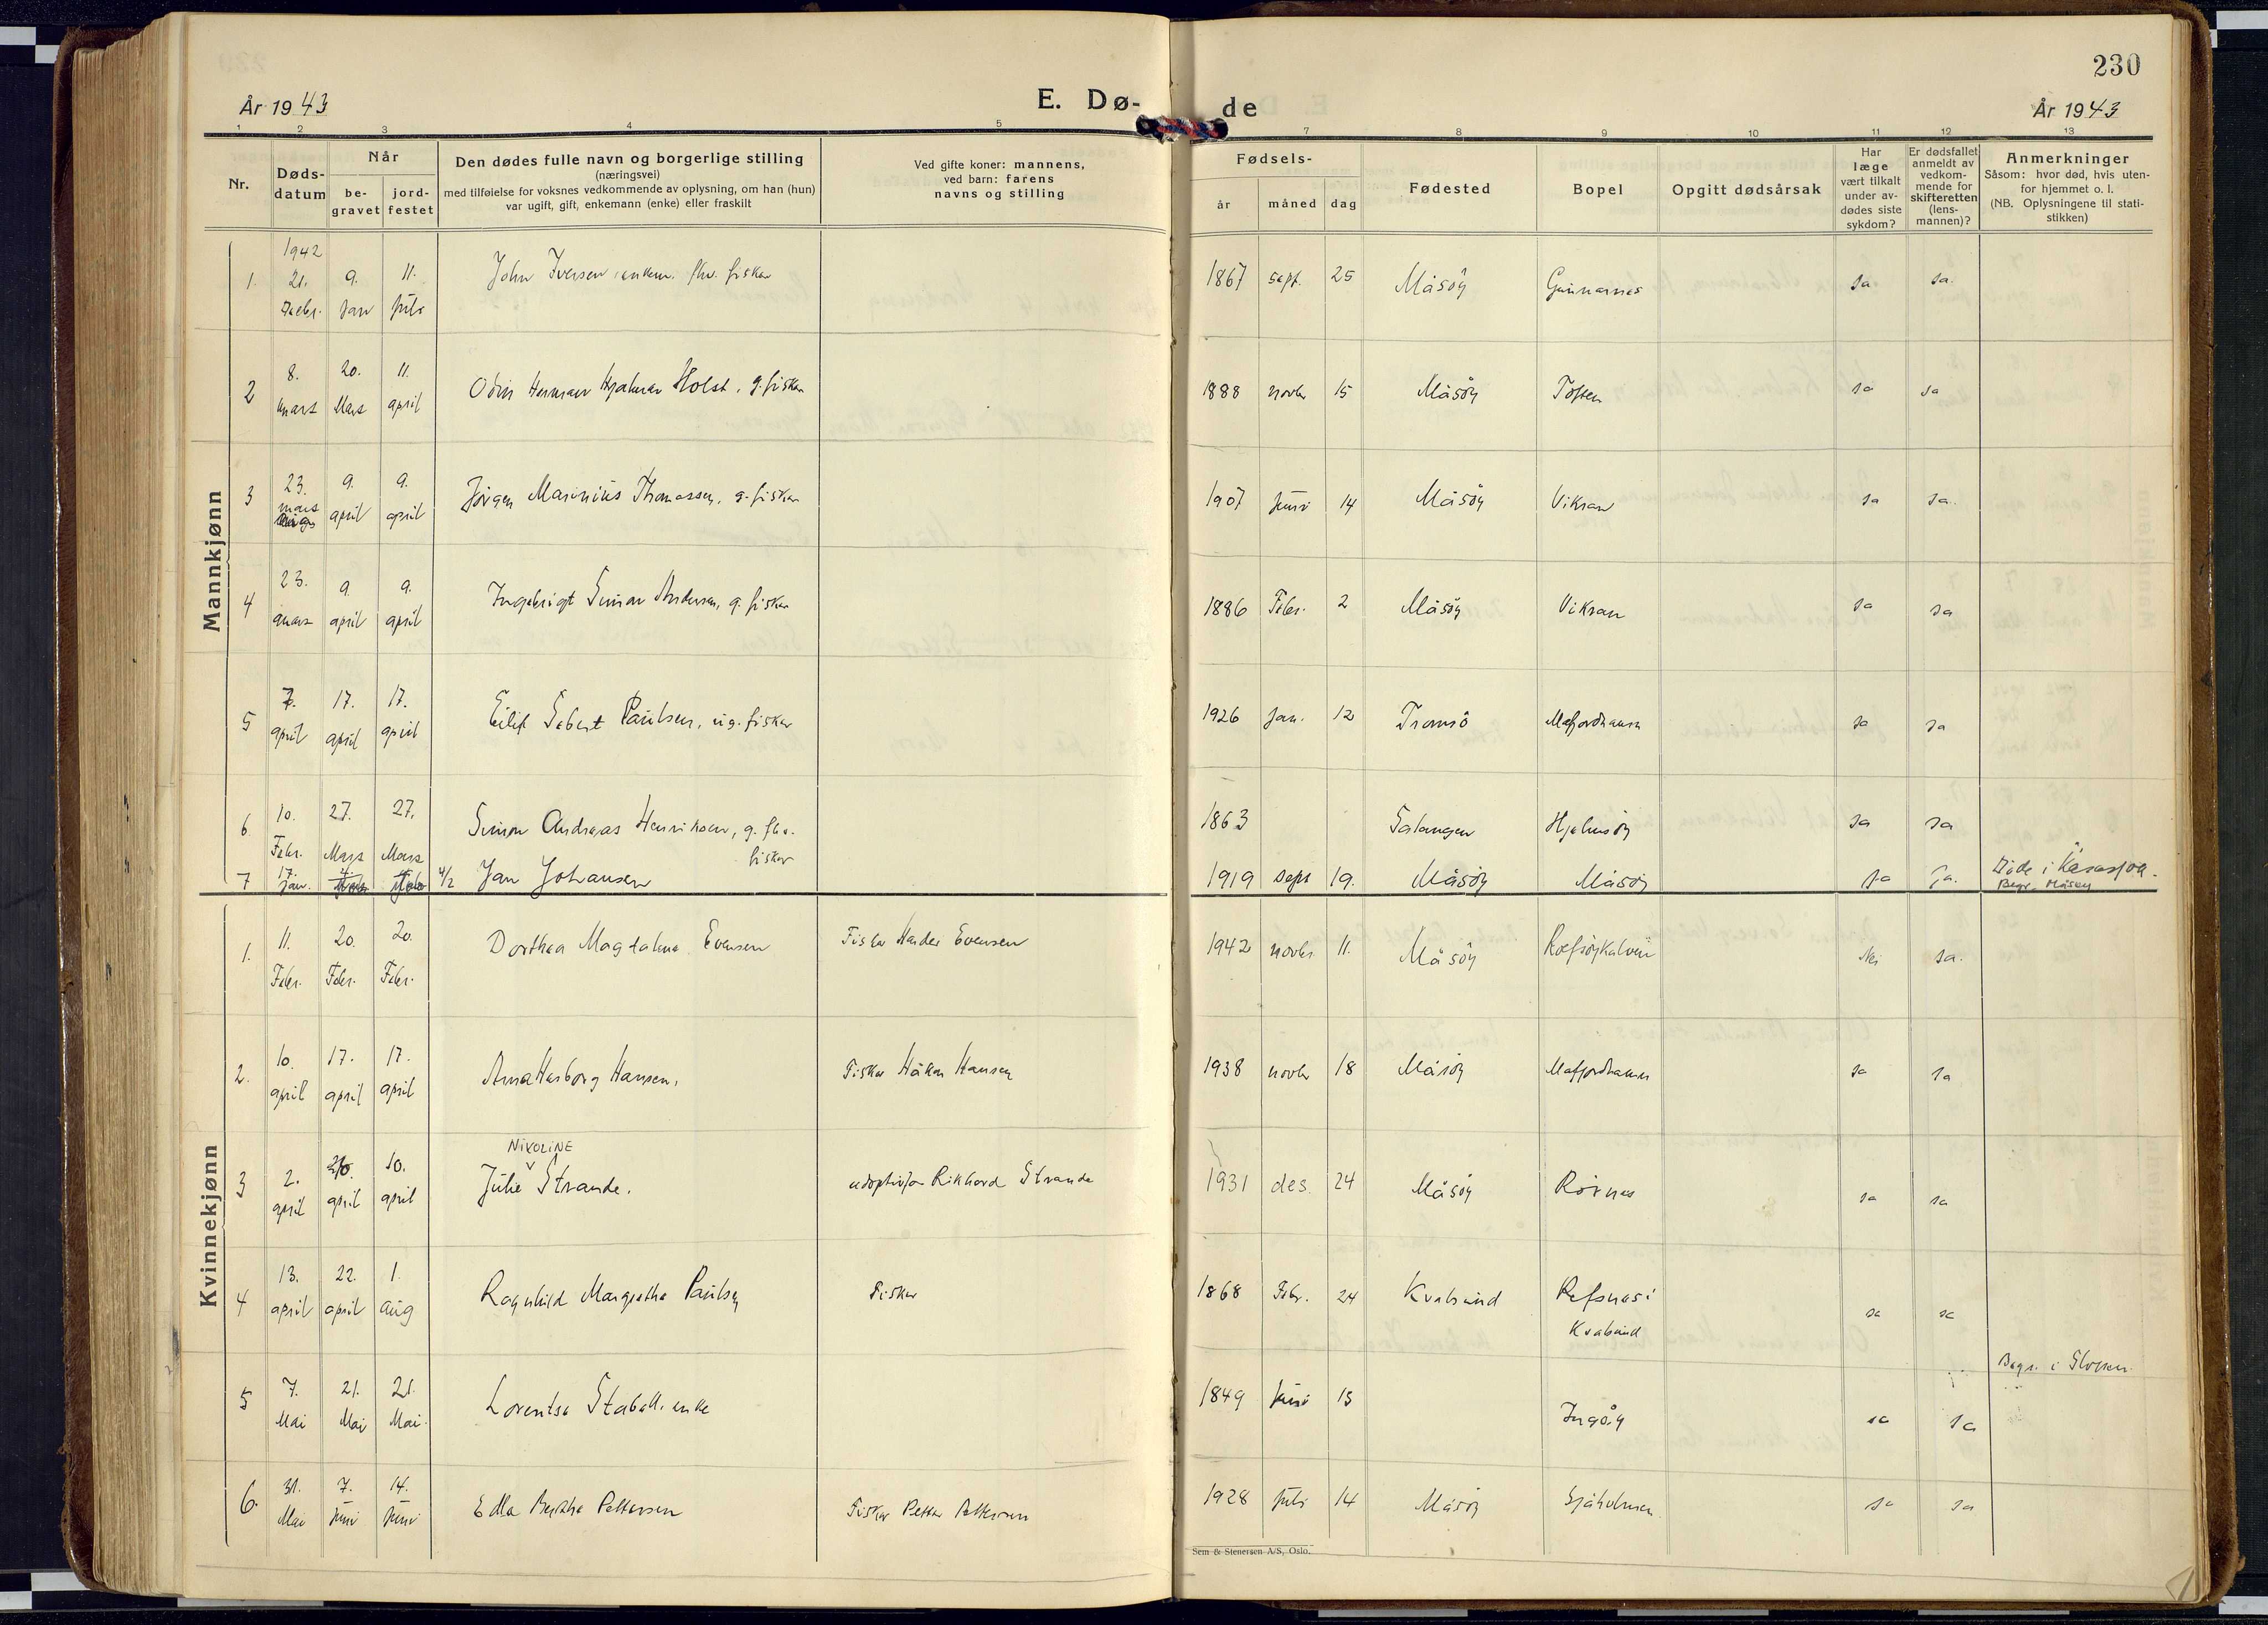 230
År 1943
E. Dø-
de
År 1943
1 2 3 4 5 7 8 9 10 11 12 13
Nr.
Døds-
datum
Når
be-
gravet
jord-
festet
Den dødes fulle navn og borgerlige stilling
(næringsvei)
med tilføielse for voksnes vedkommende av oplysning, om han (hun)
var ugift, gift, enkemann (enke) eller fraskilt
Ved gifte koner: mannens,
ved barn: farens
navns og stilling
Fødsels-
år måned dag
Fødested
Bopel
Opgitt dødsårsak
Har
læge
vært tilkalt
under av-
dødes siste
sykdom?
Er dødsfallet
anmeldt av
vedkom-
mende for
skifteretten
(lens-
mannen)?
Anmerkninger
Såsom: hvor død, hvis uten-
for hjemmet o. l.
(NB. Oplysningene til stati-
stikken)
Mannkjønn
1942
1. 21. 9. 11. John Iversen enkem. fhv. fisker 1867 sept. 25 Måsøy Gunnarnes Ja Ja.
Debr. Jan Juli
2 8. 20. 11. Odin Herman Hjalmar Holst, g. fisker 1888 novbr 15 Måsøy Toften Ja Ja
mars Mars april
3 23. 9. 9. Jörgen Marinius Thomassen, g. fisker 1907 Juni 14 Måsøy Vikran Ja Ja.
mars april april
4 23. 9. 9. Ingebrigt Simon Andersen, g. fisker 1886 Febr. 2 Måsøy Vikran Ja Ja
mars april april
5 7. 17. 17. Eilif Sebert Paulsen, ug. fisker 1926 Jan. 12 Tromsö Mafjordhamn Ja Ja
april april april
6 10. 27. 27. Simon Andreas Henriksen, g. fhv. 1863 Salangen Hjelmsöy Ja Ja
Febr. Mars Mars fisker
7 17. Jan. 4/2 Jan Johansen 1919 sept 19. Måsöy Måsöy Ja Ja. Döde i Karasjok.
Begr. Måsøy
Kvinnekjønn
1. 11. 20. 20. Dorthea Magdalena Evensen Fisker Evensen 1942 novbr. 11. Måsöy Nei Ja.
Febr. Febr. Febr.
2. 10. 17. 17. Anna Hansen, Fisker Håkon Hansen 1938 novbr 18 Måsöy Mafjordhamn Ja Ja
april april april
NIKOLINE
3 2. 10. 10. Julie Strande. adoptivfar Rikhard Strande 1931 des. 24 Måsöy Rörnes Ja Ja
april april april
4 13. 22. 1. Ragnhild Margrethe Paulsen Fisker 1868 Febr. 24 Kvalsund Refsnes i Ja Ja
april april aug Kvalsund
Begr. i
5 7. 21. 21. Lorentse Staball. enke 1849 Juni 15 Ingöy Ja Ja
Mai Mai Mai.
6. 31. 7. 14. Edla Berthe Pettersen Fisker Petter Pettersen 1928 Juli 14 Måsöy Sjåholmen Ja Ja
Mai Juni Juni
Sem & Stenersen A/S, Oslo.